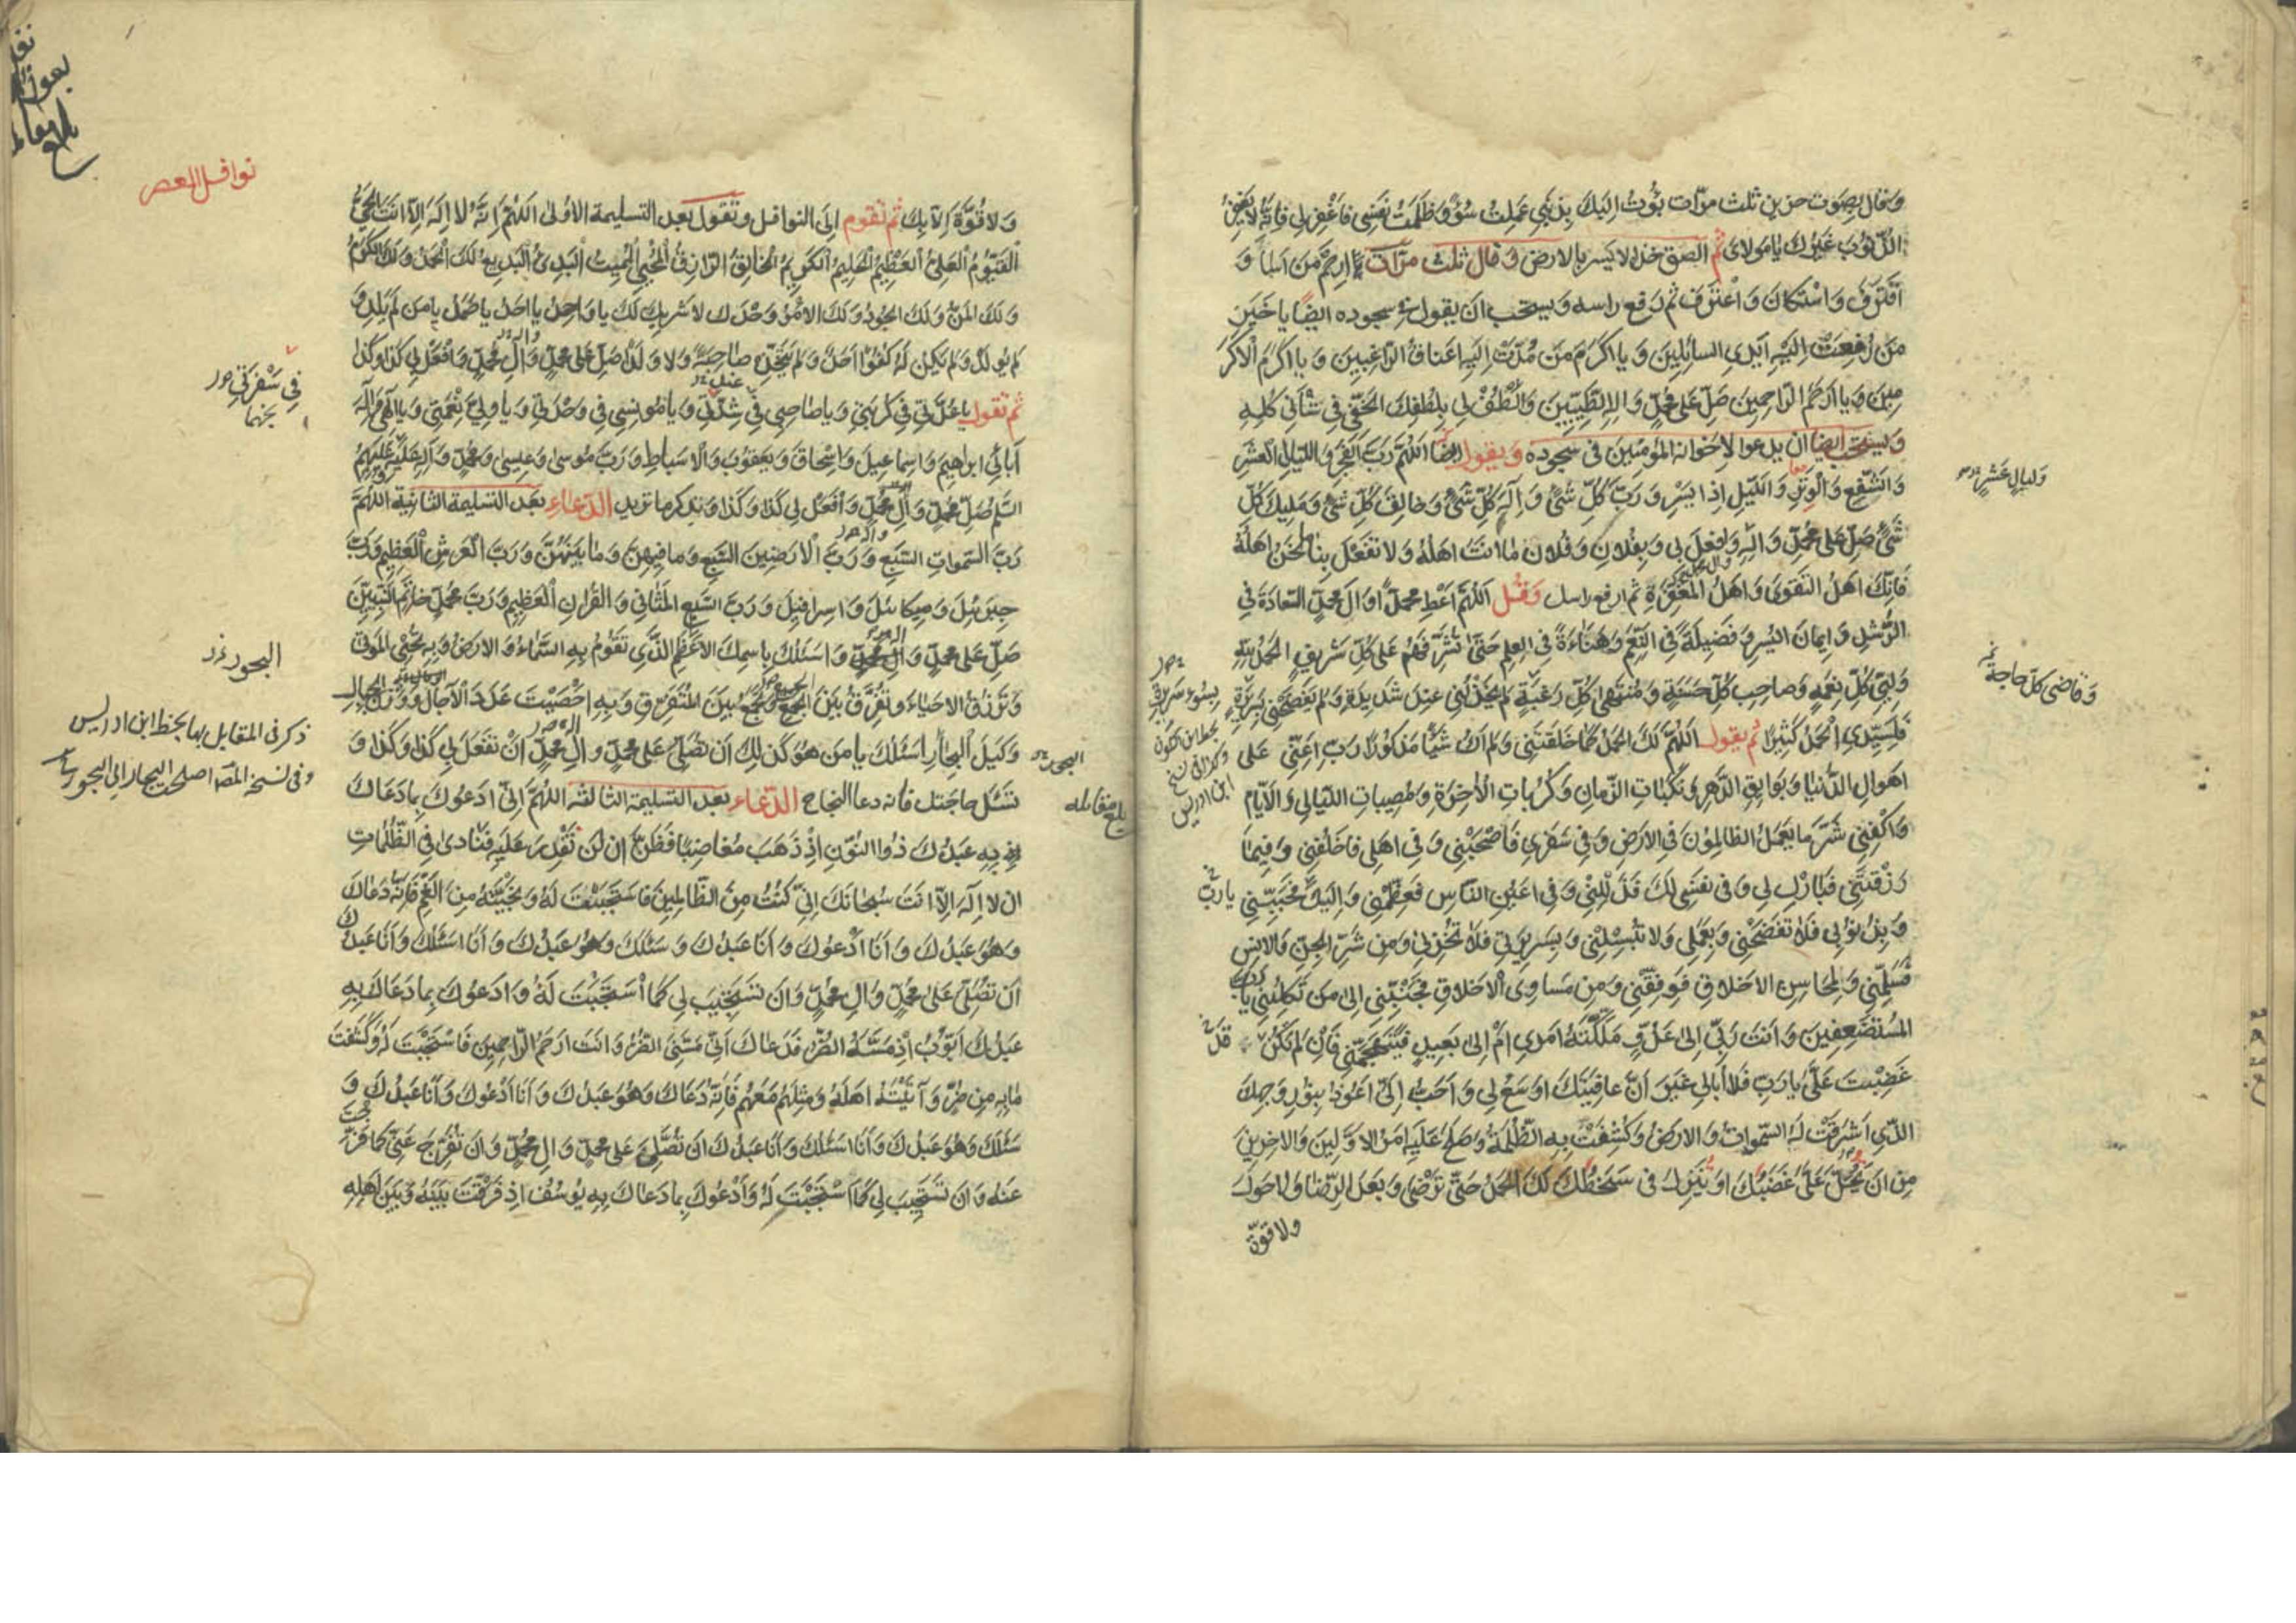 وَقال بِصَوت حزين ثلث مرّات بُؤتُ اِلَيك بِذَنبي عَمِلتُ سُوءً وَظَلَمتُ نَفسي فَاغْفِر لي فَانّه لا يَغفِرُ
الذّنوُبَ غَيرُكَ يا مَولايَ ثم الصق خدّه الايسر بالارض وَقال ثلث مرّات اِرحَمْ مَن اَسآءَ وَ
اقْتَرَفَ وَاسْتَكانَ وَاعْتَرَفَ ثم رَفع راسه وَيستحب ان يقول في سجوده ايضًا يا خَيرَ
مَن رُفِعَتْ اِلَيْهِ اَيْدِي السائِلينَ وَ يا اكرَمَ مَن مُدّتْ اِلَيهِ اَعناقُ الرّاغِبينَ وَ يا اكرَمَ الاَكرَ
مينَ وَ يا ارحَمَ الرّاحِمينَ صَلِّ عَلى محمّدٍ وَالِهِ الطَّيِّبِينَ وَالْطُفْ لي بِلُطفِكَ الخَفِيِّ في شَأني كُلِّهِ
وَيستحب ايضا ان يدعوا لاخوانه المؤمنين في سجوده وَيقول ايضا اللّهُمَّ رَبَّ الفَجرِ وَاللّيالي العَشرِ
وَالشَّفعِ وَالْوَترِ وَاللّيلِ اِذا يَسرِ وَ رَبَّ كُلِّ شَيءٍ وَ اِلهَ كُلِّ شَيءٍ وَخالِقَ كُلِّ شَيءٍ وَمَليكَ كُلِّ
شَيءٍ صَلِّ عَلى محمّدٍ وَالِهِ وَافعَل بي وَبِفُلانٍ وَفُلان ما اَنتَ اَهلُهُ وَلا تَفعَل بِنا ما نَحنُ اَهلُهُ
فَاِنَّكَ اهلُ التَّقوى وَاهلُ المَغفِرَةِ ثم ارفع راسك وَقُل اللّهُمَّ اَعْطِ محمّدًا وَالَ محمّدٍ السَّعادَةَ في
الرُّشدِ وَايمانَ اليُسرِ وَفَضيلَةً في النِّعَمِ وَهَناءَةً في العِلمِ حَتّى تُشَرِّفَهُم عَلى كُلِّ شَريفٍ الحَمدُ لِلّهِ
وَلِيِّ كُلِّ نِعمَةٍ وَصاحِبِ كُلِّ حَسَنَةٍ وَمُنتَهى كُلِّ رَغبَةٍ لَم يَخذُلني عِندَ شَديدَةٍ وَلَم يَفضَحني بِسَريرَةٍ
فَلِسَيِّدي الْحَمدُ كَثيرًا ثم يقول اَللّهُمَّ لَكَ الحَمدُ كَما خَلَقتَني وَلَم اَكُ شَيئًا مَذكورًا رَبِّ اَعِنّي عَلى
اهوالِ الدُّنيا وَبَوائِقِ الدَّهرِ وَنَكَباتِ الزَّمانِ وَكُرُباتِ الاخِرَةِ وَمُصيباتِ اللَّيالي وَالاَيّامِ
وَاكْفِني شَرَّ ما يَعمَلُ الظالِمُونَ في الارَضِ وَفي سَفَري فَاصْحَبْني وَ في اهلي فَاخلُفني وَفيما
رَزَقتَني فَبارِك لي وَفي نَفسي لَكَ فَذَلِّلني وَفي اَعيُنِ النّاسِ فَعَظِّمني وَاِلَيكَ فَحَبِّبني يا ربِّ
وَبِذُنوبي فَلا تَفضَحني وَبِعَمَلي وَلا تُبسِلني وَبِسَريرَتي فَلا تُخزِني وَمِن شَرِّ الجِنِّ وَالانسِ
فَسَلِّمني وَلِمَحاسِنِ الاخلاقِ فَوَفِّقني وَمِن مَساوِي الاخلاقِ فَجَنِّبني اِلى مَن تَكِلُني يا ربّ
المُستَضعِفينَ وَ اَنتَ رَبّي اِلى عَدُوٍّ مَلَّكتَهُ امري اَم اِلى بَعيدٍ فَيَتَجَهَّمَني فَاِن لَم تَكُن قَد
غَضِبتَ عَلَيَّ يا رَبِّ فَلا اُبالي غَيرَ اَنَّ عافِيَتَكَ اوسَعُ لي وَ اَحَبُّ اِلَيَّ اَعُوذُ بِنُورِ وَجهِكَ
الَّذي اَشرَقَت لَهُ السَّمواتُ وَالارضُ وَكُشِفَتْ بِهِ الظُّلمَةُ وَصَلُحَ عَلَيهِ امرُ الاوَّلينَ وَالاخِرينَ
مِن ان يَحُلَّ عَلَيَّ غَضَبُكَ او يَنزِلَ في سَخَطُكَ لَكَ الحَمدُ حَتّى تَرضى وَبَعدَ الرِّضا وَلا حَولَ
ولا قوّة
وَليالٍ عَشرٍ
وَقاضي كلّ حاجة
وَلا قُوَّةَ اِلاّ بِكَ ثم تقوم اِلى النوافل وتقول بعد التسليمة الاولى اَللّهُمَّ اِنَّهُ لا اِلهَ اِلاّ اَنتَ الحَيُّ
القَيُّومُ العَلِيُّ العَظيمُ الحَليمُ الكَريمُ الخالِقُ الرّازِقُ المُحيي المُميتُ البَدِئُ البَديعُ لَكَ الحَمدُ وَلَكَ الكَرَمُ
وَلَكَ المَنُّ وَلَكَ الجُودُ وَلَكَ الامرُ وَحدَكَ لا شَريكَ لَكَ يا واحِدُ يا احَدُ يا صَمَدُ يا مَن لَم يَلِد وَ
لَم يُولَد وَلَم يَكُن لَهُ كُفُوًا اَحَدٌ وَلَم يَتَّخِذ صاحِبَةً وَلا وَلَدًا صَلِّ عَلى محمّدٍ وَالِ محمّدٍ وَافعَل لي كَذا وَكَذا
ثم تقول يا عُدَّتي في كُربَتي وَ يا صاحِبي في شِدَّتي وَ يا مُونِسي في وَحدَتي وَ يا وَلِيَّ نِعمَتي وَ يا اِلهي وَاِلهَ
آبائي ابراهيمَ وَاِسماعيلَ وَاِسحاقَ وَيَعقوبَ وَالاسباطِ وَرَبَّ مُوسى وَعيسى وَمحمّدٍ وَآلِهِ عَلَيهِمُ
السَّلم صَلِّ عَلى محمّدٍ وَالِ محمّدٍ وَافعَل لي كَذا وَكَذا وَتذكر ما تريد الدّعاء بعد التسليمة الثانية اللّهُمَّ
رَبَّ السَّمواتِ السَّبعِ وَ رَبَّ الارَضينَ السَّبعِ وَما فيهِنَّ وَما بَينَهُنَّ وَ رَبَّ العَرشِ العَظيمِ وَرَبَّ
جَبرَئيلَ وَميكائيلَ وَاِسرافيلَ وَ رَبَّ السَّبعِ المَثاني وَ القُرآنِ العَظيمِ وَ رَبَّ محمّدٍ خاتَمِ النَّبِيّينَ
صَلِّ عَلى محمّدٍ وَالِ محمّدٍ وَاَسئَلُكَ بِاسمِكَ الاعظَمِ الَّذي تَقومُ بِهِ السَّماءُ وَالارضُ وَبِهِ تُحيي المَوتى
وَ تَرزُقُ الاحياءَ وَ تُفَرِّقُ بَينَ الجَمعِ وَتَجمَعُ بَينَ المُتَفَرِّقِ وَبِهِ اَحصَيتَ عَدَدَ الآجالِ وَ وَزنَ الجِبالِ
وَكَيلَ البِحارِ اَسئَلُكَ يا مَن هُوَ كَذلِكَ اَن تُصَلِّيَ عَلى محمّدٍ وَالِ محمّدٍ اَن تَفعَلَ لي كَذا وَكَذا وَ
تسئل حاجتك فانه دعا النجاح الدّعاء بعد التسليمة الثالثة اللّهُمَّ اِنّي اَدعُوكَ بِما دَعاكَ
بِهِ عَبدُكَ ذُوا النُّونِ اِذْ ذَهَبَ مُغاضِبًا فَظَنَّ اَن لَن نَقدِرَ عَلَيهِ فَنادى فِي الظُّلُماتِ
ان لا اِلهَ اِلاّ اَنتَ سُبحانَكَ اِنّي كُنتُ مِنَ الظّالِمينَ فَاستَجَبتَ لَهُ وَنَجَّيتَهُ مِنَ الغَمِّ فَاِنَّهُ دَعاكَ
وَهُوَ عَبدُكَ وَ اَنا اَدعُوكَ وَ اَنَا عَبدُكَ وَ سَئَلَكَ وَهُوَ عَبدُكَ وَ اَنَا اَسئَلُكَ وَ اَنا عَبدُكَ
اَن تُصَلِّيَ عَلى محمّدٍ وَالِ محمّدٍ وَان تَستَجيبَ لي كَمَا استَجَبتَ لَهُ وَ اَدعُوكَ بِما دَعاكَ بِهِ
عَبدُكَ اَيُّوبُ اِذ مَسَّهُ الضُّرُّ فَدَعاكَ اَنّي مَسَّنِيَ الضُّرُّ وَ اَنتَ ارحَمُ الرّاحِمينَ فَاستَجَبتَ لَهُ وَكَشَفتَ
ما بِهِ مِن ضُرٍّ وَ آتَيتَهُ اَهلَهُ وَمِثلَهُم مَعَهُم فَاِنَّهُ دَعاكَ وَهُوَ عَبدُكَ وَ اَنَا اَدعُوكَ وَ اَنَا عَبدُكَ وَ
سَئَلَكَ وَهُوَ عَبدُكَ وَ اَنَا اَسئَلُكَ وَ اَنا عَبدُكَ ان تُصَلِّيَ عَلى محمّدٍ وَالِ محمّدٍ وَ اَن تُفَرِّجَ عَنّي كَما فَرَّجتَ
عَنهُ وَ اَن تَستَجيبَ لي كَما اَستَجَبتَ لَهُ وَ اَدعُوكَ بِما دَعاكَ بِهِ يُوسُفُ اِذ فَرَّقتَ بَينَهُ وَ بَينَ اَهلِهِ
نوافل العصر
البحور
ذكر في المقابل بها بخط ابن ادريس
وفي نسخة المص اصلحت البحار الى البحور
بلغ مقابله